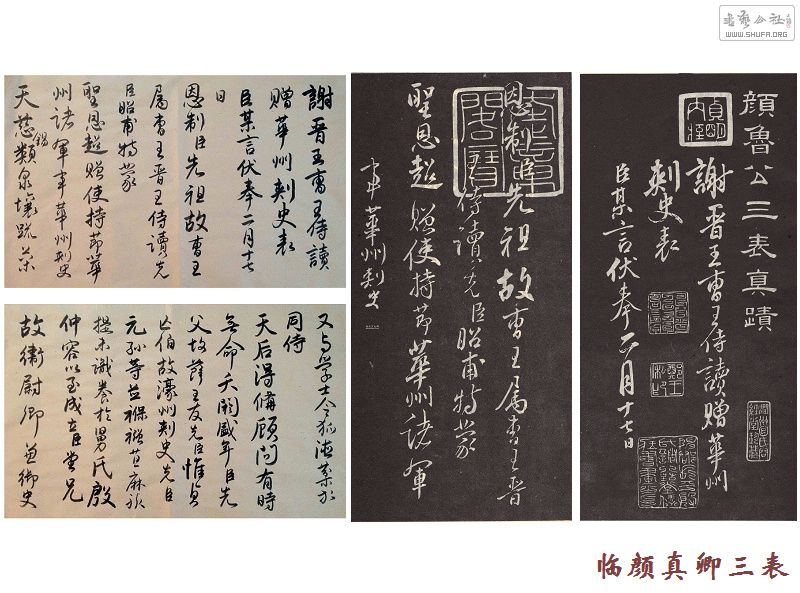 书艺公社
WWW.SHUFA.ORG
顏魯公三表真蹟
謝晉王曹王侍讀贈華州
刺史表
臣某言伏奉二月十七日
恩制臣先祖故曹王属曹王晉
侍讀先臣昭甫特蒙
聖恩超贈使持節華州諸軍
事華州刺史
謝晉王曹王侍讀
贈華州刺史表
臣某言伏奉二月十七
日
恩制臣先祖故曹王
属曹王晉王侍讀先
臣昭甫特蒙
聖恩超贈使持節華
州諸軍事華州刺史
天慈錫類泉壤疏榮
又与学士令狐德棻於
同侍
天后得備顧問有時
無命天閼盛年臣先
父故薛王友先臣惟貞
亡伯故濠州刺史先臣
元孫等並襁褓苴麻孩
提未識養於舅氏殷
仲容以至成立臣堂兄
故衛尉卿兼御史
临颜真卿三表